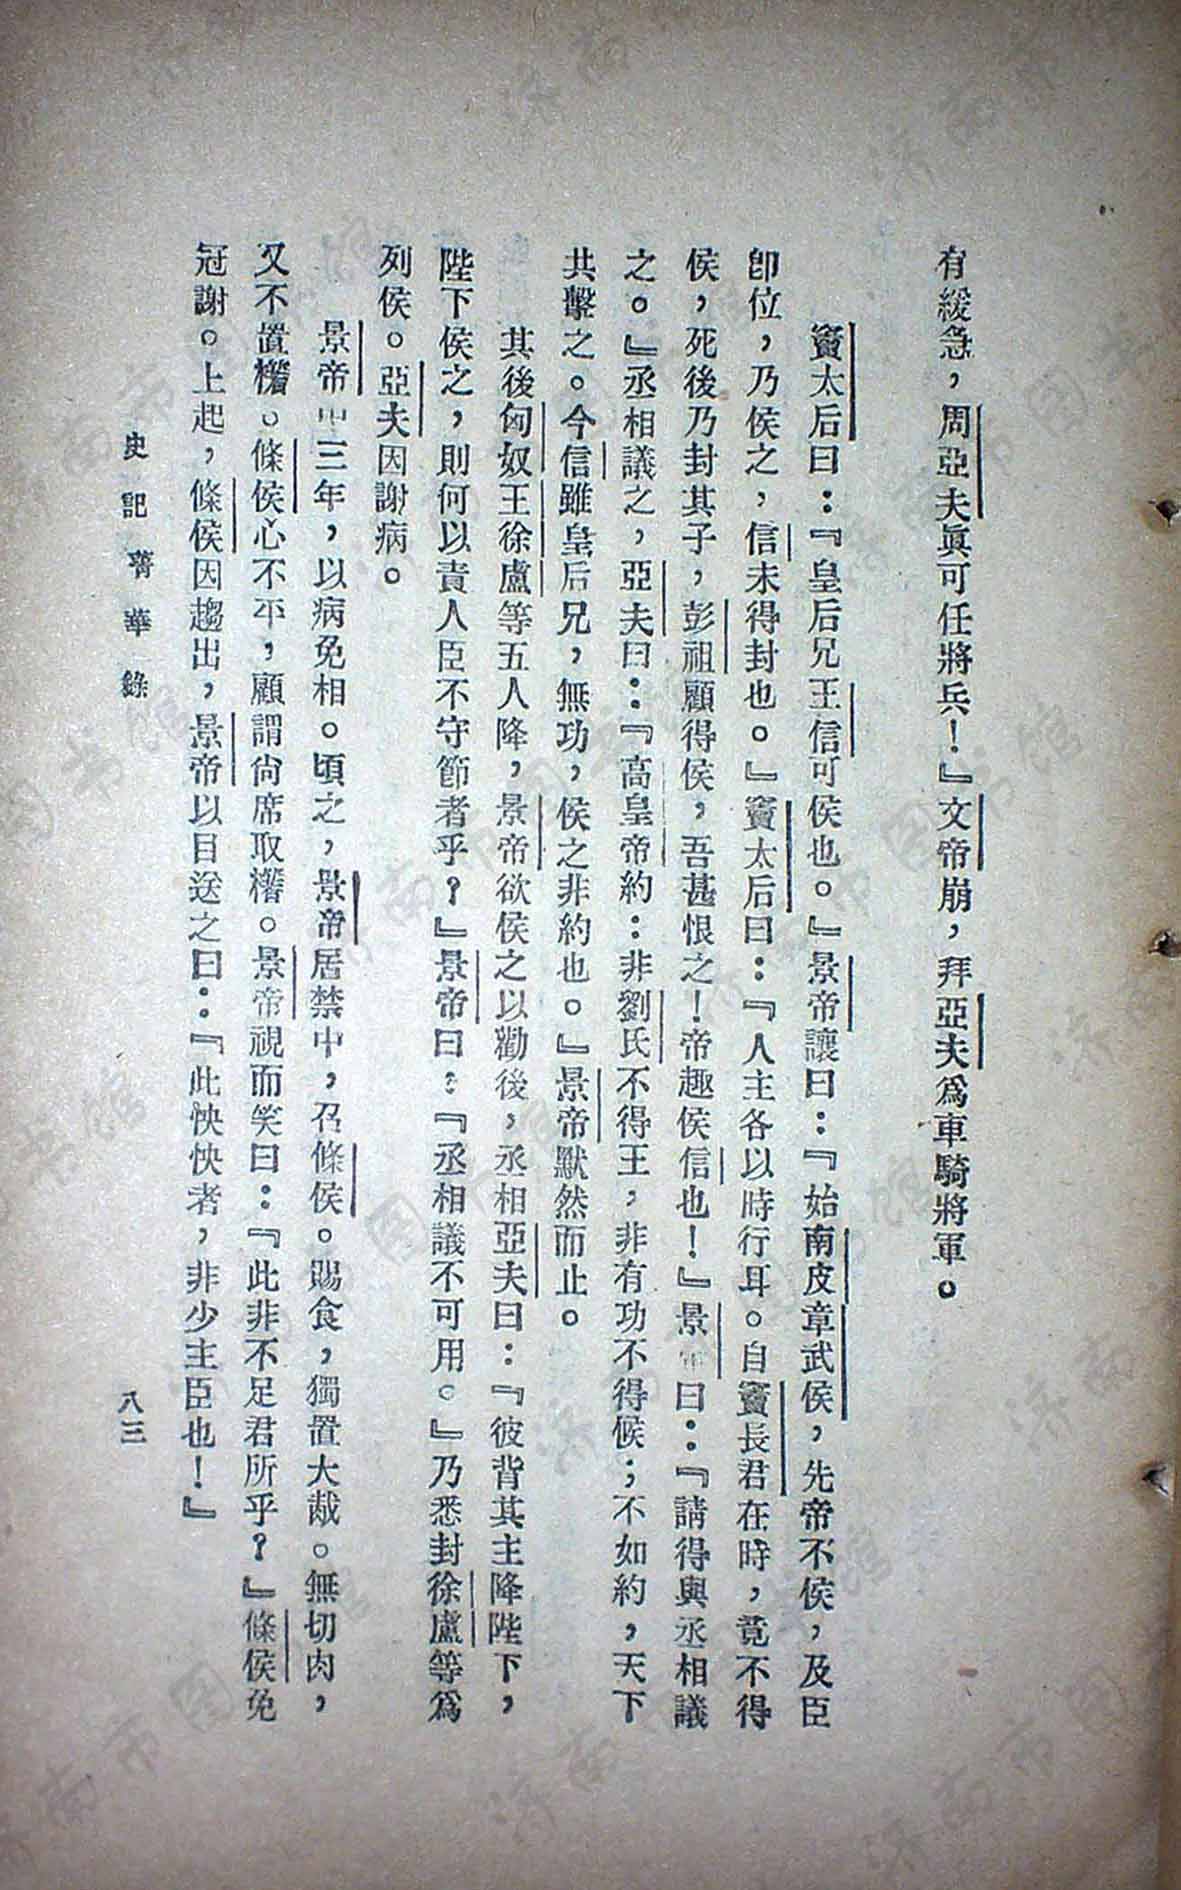 有緩急，周亞夫眞可任將兵！』文帝崩，拜亞夫爲車騎將軍。
竇太后曰：『皇后兄王信可侯也。』景帝讓曰：『始南皮章武侯，先帝不侯，及臣
卽位，乃侯之，信未得封也。』竇太后曰：『人主各以時行耳。自竇長君在時，竟不得
侯，死後乃封其子，彭祖顧得侯，吾甚恨之！帝趣侯信也！』景帝曰：『請得與丞相議
之。』丞相議之，亞夫曰：『高皇帝約：非劉氏不得王，非有功不得侯；不如約，天下
共擊之。今信雖皇后兄，無功，侯之非約也。』景帝默然而止。
其後匈奴王徐盧等五人降，景帝欲侯之以勸後，丞相亞夫曰：『彼背其主降陛下，
陛下侯之，則何以責人臣不守節者乎？』景帝曰：『丞相議不可用。』乃悉封徐盧等爲
列侯。亞夫因謝病。
景帝中三年，以病免相。頃之，景帝居禁中，召條侯。賜食，獨置大胾。無切肉，
又不置櫡。條侯心不平，顧謂尙席取櫡。景帝視而笑曰：『此非不足君所乎？』條侯免
冠謝。上起，條侯因趨出，景帝以目送之曰：『此怏怏者，非少主臣也！』
史記菁華錄
八三
济南市图书馆